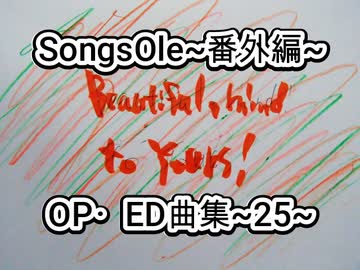 SongsOle~番外編~
Beautiful, mind
to Yours!
OP・ED曲集~25~